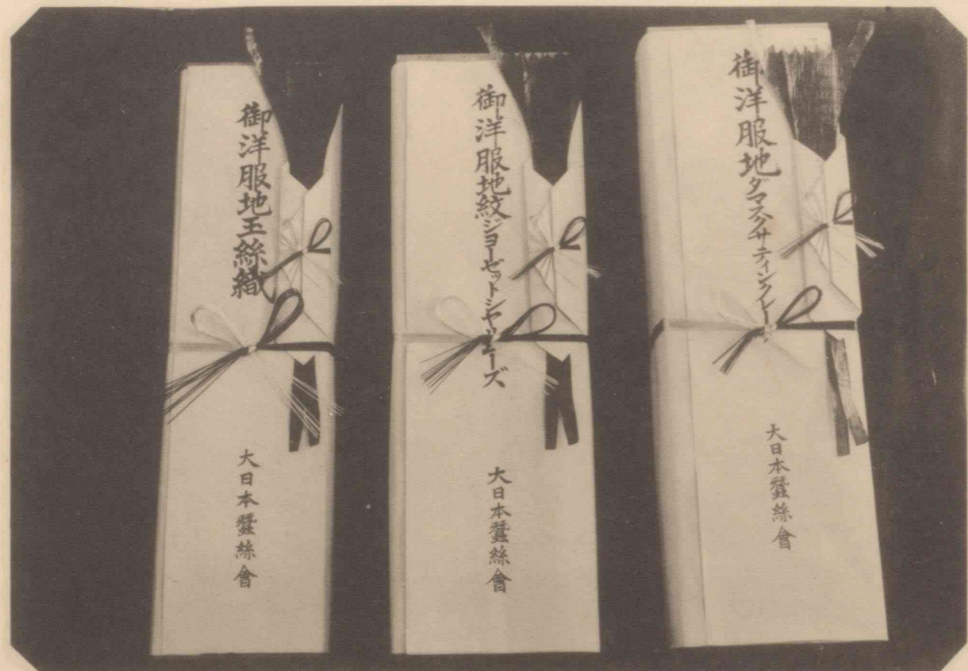 御洋服地ダマスクサティンクレー
大日本蠶絲會
御洋服地紋ジョーゼット
大日本蠶絲會
御洋服地玉絲織
大日本蠶絲會